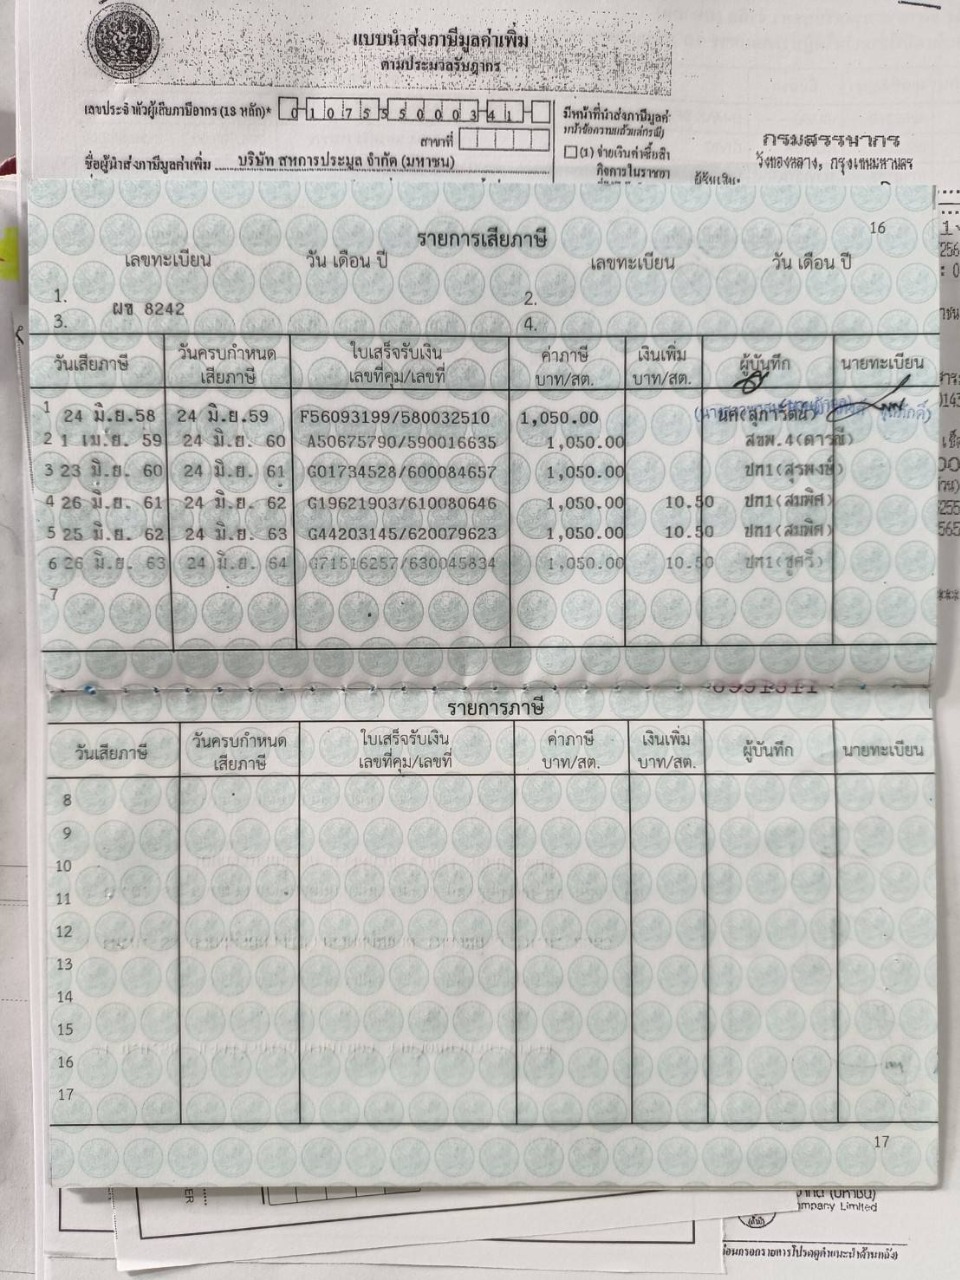 แบบนำส่งภาษีมูลค่าเพิ่ม
ตามประมวลรัษฎากร
เลขประจำตัวผู้เสียภาษีอากร (13 หลัก)*
มีหน้าที่นำส่งภาษีมูลค่า
สาขาที่
(1) จ่ายเงินค่าซื้อสิ
กิจการในราชอา
ชื่อผู้นำส่งภาษีมูลค่าเพิ่ม บริษัท สหการประมูล จำกัด (มหาชน)
กรมสรรพากร
วังทองหลาง, กรุงเทพมหานคร
16
รายการเสียภาษี
เลขทะเบียน วัน เดือน ปี เลขทะเบียน วัน เดือน ปี
1. 2.
ผข 8242
3. 4.
วันเสียภาษี วันครบกำหนดเสียภาษี ใบเสร็จรับเงิน เลขที่คุม/เลขที่ ค่าภาษี บาท/สต. เงินเพิ่ม บาท/สต. ผู้บันทึก นายทะเบียน
1 24 มิ.ย.58 24 มิ.ย.59 F56093199/580032510 1,050.00
2 1 เม.ย. 59 24 มิ.ย. 60 A50675790/590016635 1,050.00 สขพ.4(ดารณี)
3 23 มิ.ย. 60 24 มิ.ย. 61 G01734528/600084657 1,050.00 ปภ1(สุรพงษ์)
4 26 มิ.ย. 61 24 มิ.ย. 62 G19621903/610080646 1,050.00 10.50 ปภ1(สมพิศ)
5 25 มิ.ย. 62 24 มิ.ย. 63 G44203145/620079623 1,050.00 10.50 ปภ1(สมพิศ)
6 26 มิ.ย. 63 24 มิ.ย. 64 G71516257/630045834 1,050.00 10.50 ปภ1(ชูศรี)
7
รายการภาษี
วันเสียภาษี วันครบกำหนดเสียภาษี ใบเสร็จรับเงิน เลขที่คุม/เลขที่ ค่าภาษี บาท/สต. เงินเพิ่ม บาท/สต. ผู้บันทึก นายทะเบียน
8
9
10
11
12
13
14
15
16
17
17
mpany Limited